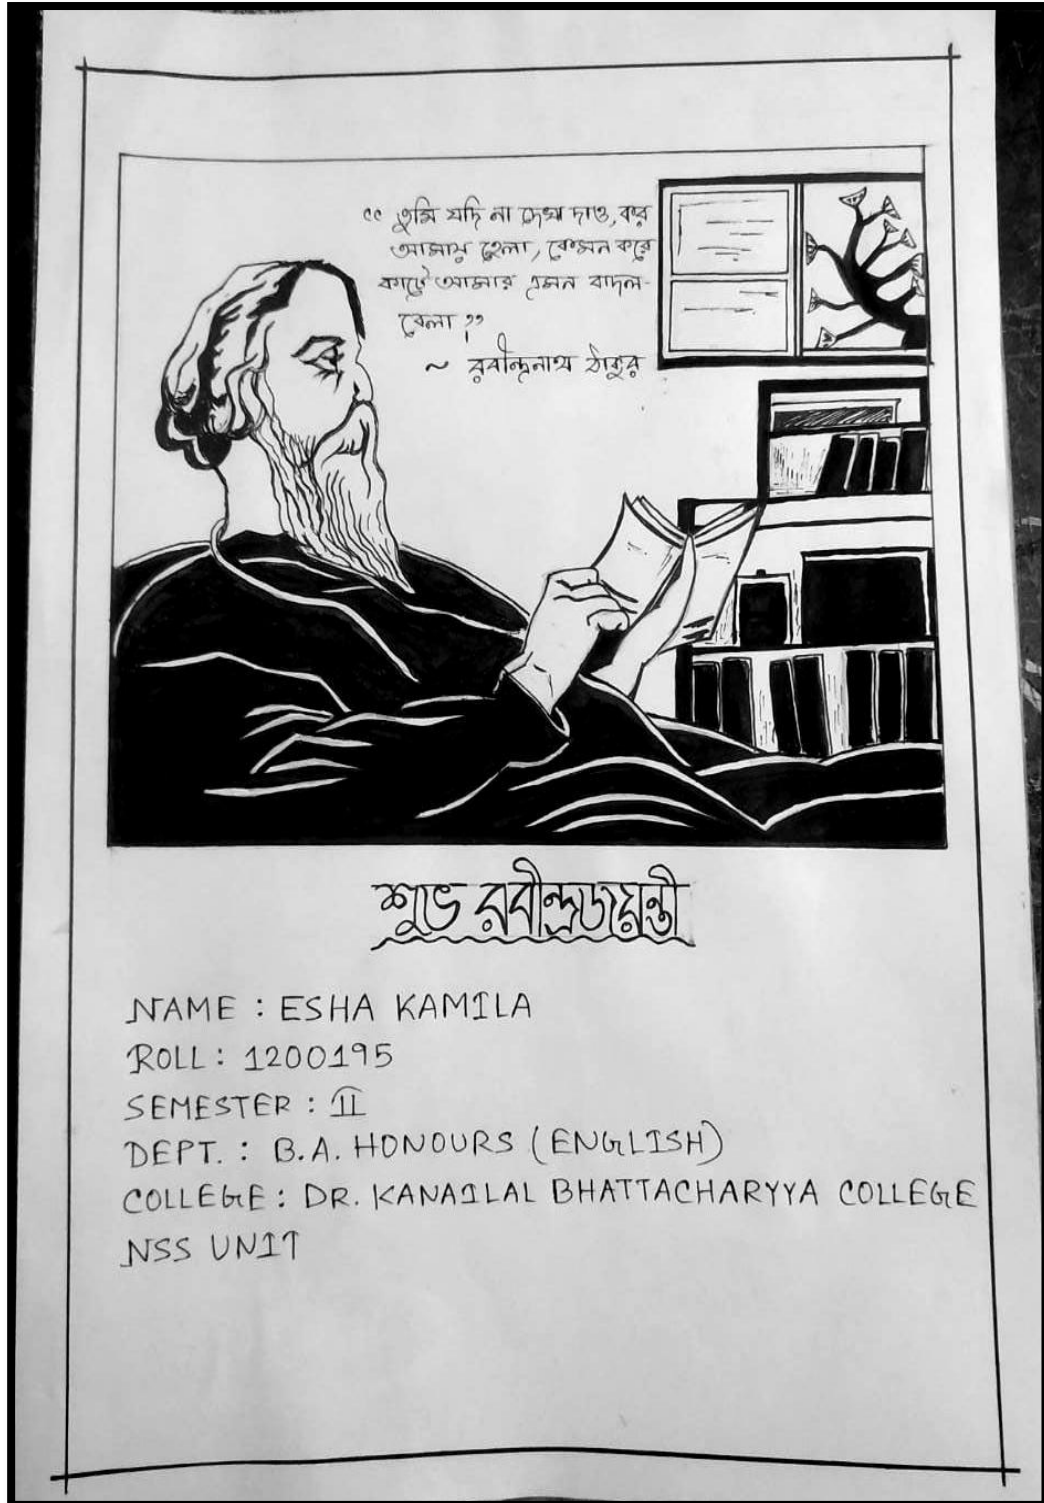 “ তুমি যদি না দেখা দাও, কর
আমায় হেলা, কেমন করে
কাটে আমার এমন বাদল-
বেলা ??
~ রবীন্দ্রনাথ ঠাকুর
শুভ রবীন্দ্রজয়ন্তী
NAME : ESHA KAMILA
ROLL : 1200195
SEMESTER : II
DEPT. : B.A. HONOURS (ENGLISH)
COLLEGE : DR. KANAILAL BHATTACHARYYA COLLEGE
NSS UNIT